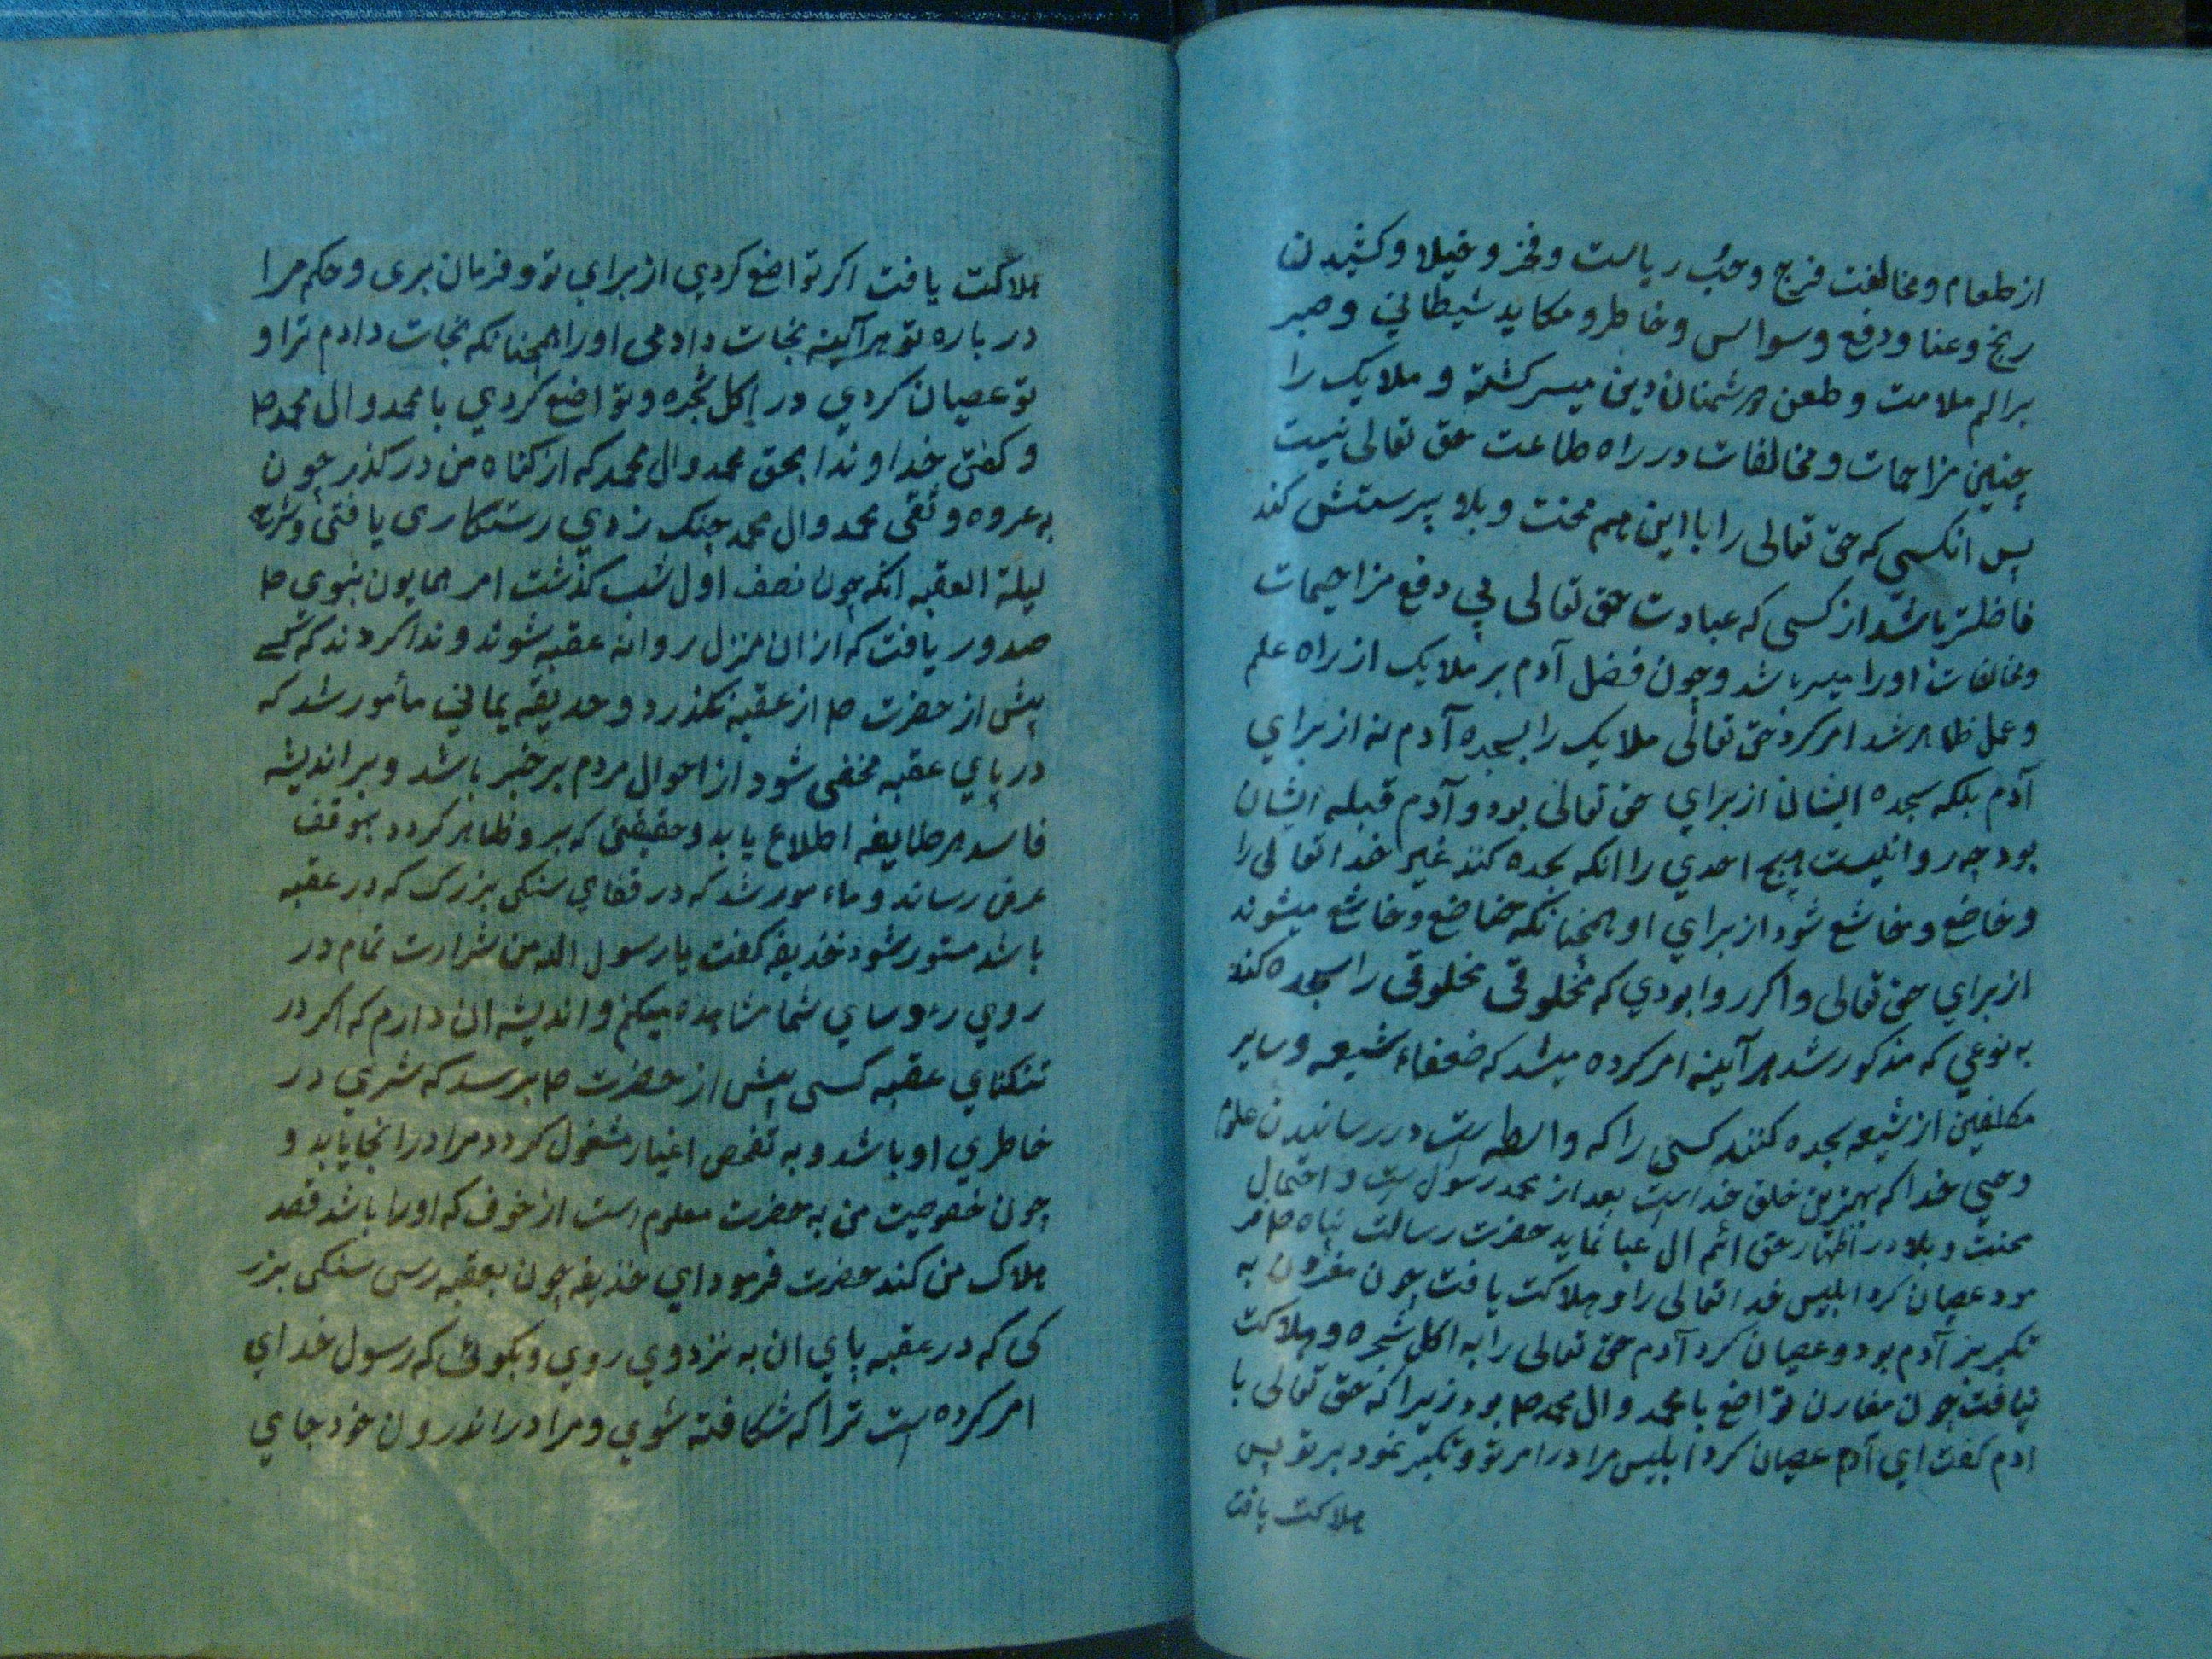 از طعام و مخالفت فرج و حبُ ریاست و فخر و خیلا و کشیدن
رنج و عنا و دفع وسواس و خاطر و مکاید شیطانی و صبر
بر الم ملامت و طعن دشمنان دین میسر کشته و ملایک را
چنین مزاحمات و مخالفات در راه طاعت حق تعالی نیست
پس انکسی که حق تعالی را با این همه محنت و بلا پرستش کند
فاضلتر باشد از کسی که عبادت حق تعالی بی دفع مزاحمات
و مخالفات او را میسر باشد و چون فضل آدم بر ملایک از راه علم
و عمل ظاهر شد امر کرد حق تعالی ملایک را بسجده آدم نه از برای
آدم بلکه سجده ایشان از برای حق تعالی بود و آدم قبله ایشان
بود چه روا نیست هیچ احدی را انکه سجده کند غیر خدا تعالی را
و خاضع و خاشع شود از برای او همچنانکه خاضع و خاشع میشوند
از برای حق تعالی و اکر روا بودی که مخلوقی مخلوقی را سجده کند
به نوعی که مذکور شد هر آینه امر کرده میشد که ضعفاء شیعه و سایر
مکلفین از شیعه سجده کنند کسی را که واسطه است در رسانیدن علوم
وصی خدا که بهترین خلق خداست بعد از محمد رسول است و احتمال
محنت و بلا در اظهار حق ائم ال عبا نماید حضرت رسالت پناه صلم فر
مود عصیان کرد ابلیس خدا تعالی را و هلاکت یافت چون مقرون به
تکبر بر آدم بود و عصیان کرد آدم حق تعالی را به اکل شجره و هلاکت
نیافت چون مقارن تواضع با محمد و ال محمد صلم بود زیرا که حق تعالی با
ادم کفت ای آدم عصیان کرد ابلیس مرا در امر تو و تکبر نمود بر تو پس
هلاکت یافت
هلاکت یافت اکر تواضع کردی از برای تو و فرمان بری و حکم مرا
در باره تو هر آینه نجات دادمی او را همچنانکه نجات دادم ترا و
تو عصیان کردی در اکل شجره و تواضع کردی با محمد و ال محمد صلم
و کفتی خداوندا بحق محمد و ال محمد که از کناه من در کذر چون
به عروه وثقی محمد و ال محمد چنک زدی رستکاری یافتی و شرح
لیلة العقبه انکه چون نصف اول شب کذشت امر همایون نبوی صلم
صدور یافت که از ان منزل روانه عقبه شوند و ندا کردند که کسے
پیش از حضرت صلم از عقبه نکذرد و حدیفه یمانی مأمور شد که
در پای عقبه مخفی شود از احوال مردم بر خبر باشد و بر اندیشه
فاسد هر طایفه اطلاع یابد و حقیقتی که بر و ظاهر کردد بموقف
عرض رساند و ماء مور شد که در قفای سنکی بزرک که در عقبه
باشد مستور شود خذیفه کفت یا رسول الله من شرارت تمام در
روی رءوسای شما مشاهده میکنم و اندیشه ان دارم که اکر در
تنکنای عقبه کسی پیش از حضرت صلم برسد که شری در
خاطری او باشد و به تفحص اغیار مشغول کردد مرا در انجا یابد و
چون خصوصیت من به حضرت معلوم است از خوف که او را باشد قصد
هلاک من کند حضرت فرمود ای خذیفه چون بعقبه رسی سنکی بزر
کی که در عقبه پای ان به نزد وی روی و بکوئی که رسول خدای
امر کرده است ترا که شکافته شوی و مرا در اندرون خود جای